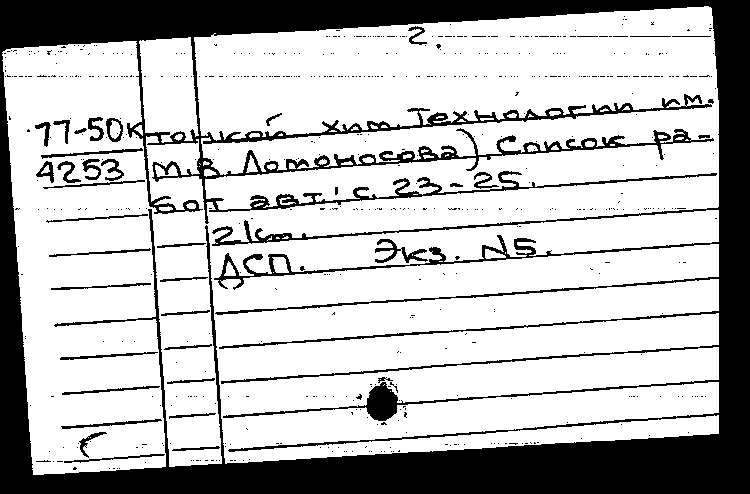 2.
77-50к тонкой хим. технологии им.
4253 М.В. Ломоносова). Список ра=
бот авт.: с. 23-25.
21см.
ДСП. Экз. N5.